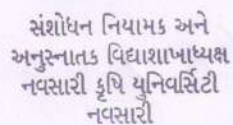 સંશોધન નિયામક અને
અનુસ્નાતક વિદ્યાશાખાધ્યક્ષ
નવસારી કૃષિ યુનિવર્સિટી
નવસારી